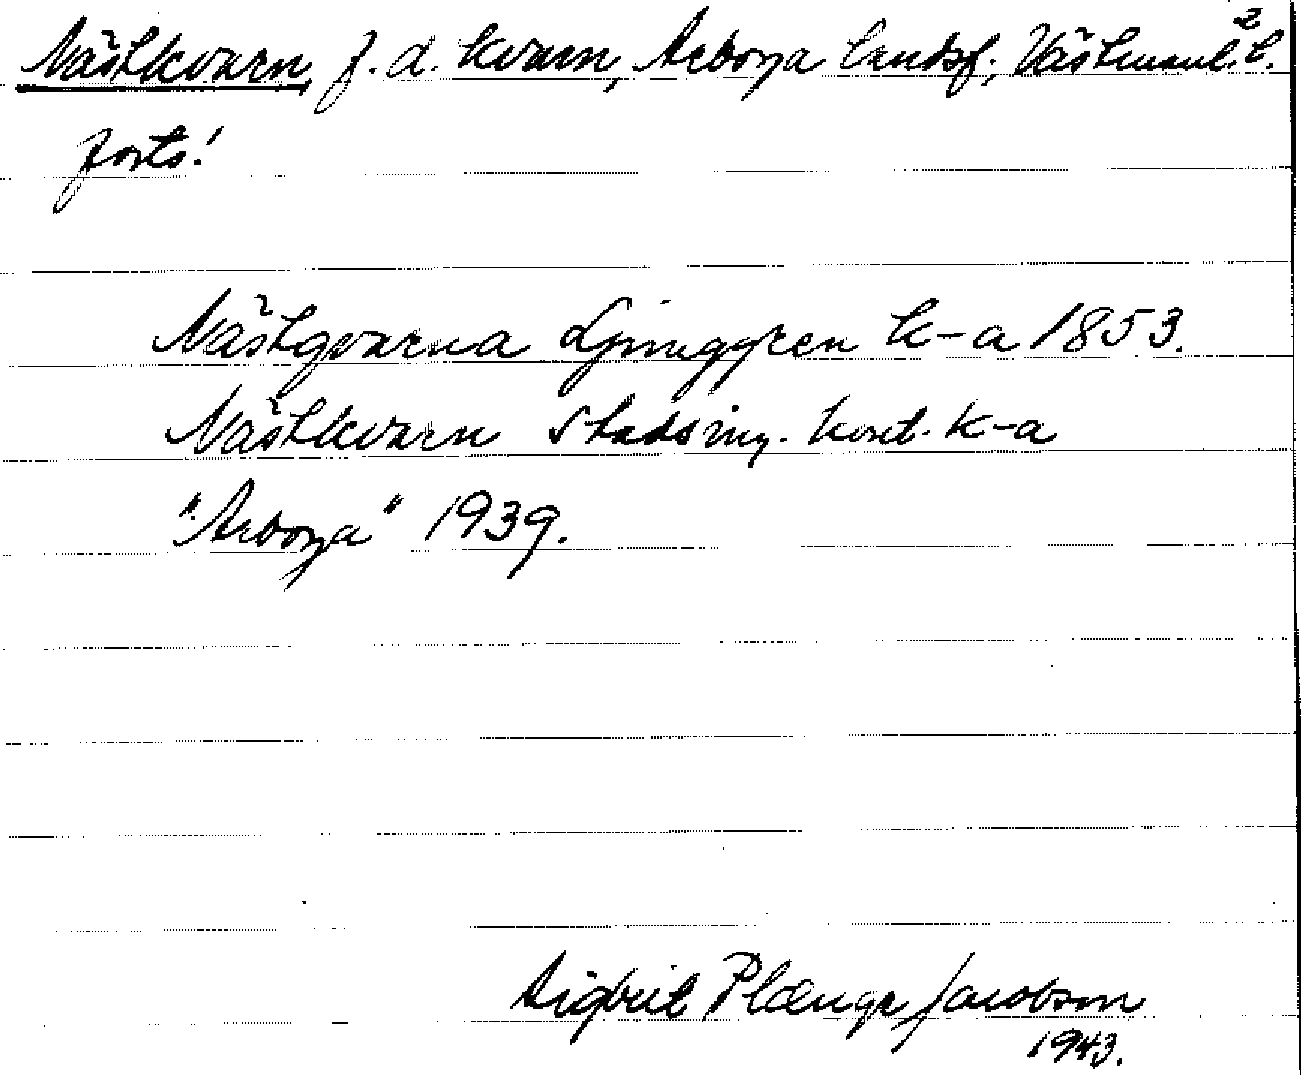 2
Nästkvarn, f.d. kvarn, Arboga landsf., Västmanl. l.
forts!
Nästgvarna Ljunggren k-a 1853.
Nästkvarn Stadsing. kont. k-a
"Arboga" 1939.
Sigbrit Plænge Jacobson
1943.